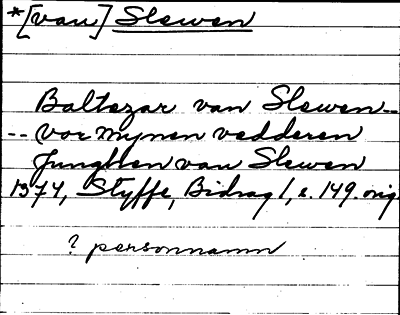 *[van] Slewen
Baltazar van Slewen --
-- vor mynen vedderen
Junghen van Slewen
1374, Styffe, Bidrag 1, s. 149. orig.
? personnamn